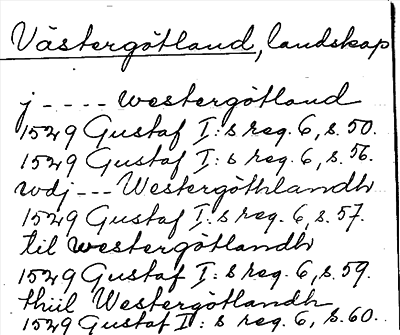 Västergötland, landskap
j - - - - westergötland
1529 Gustaf I:s reg. 6, s. 50.
1529 Gustaf I:s reg. 6, s. 56.
wdj - - - Westergöthlandh
1529 Gustaf I:s reg. 6, s. 57.
til westergötlandh
1529 Gustaf I:s reg. 6, s. 59.
thiil Westergötlandh
1529 Gustaf I:s reg. 6, s. 60.